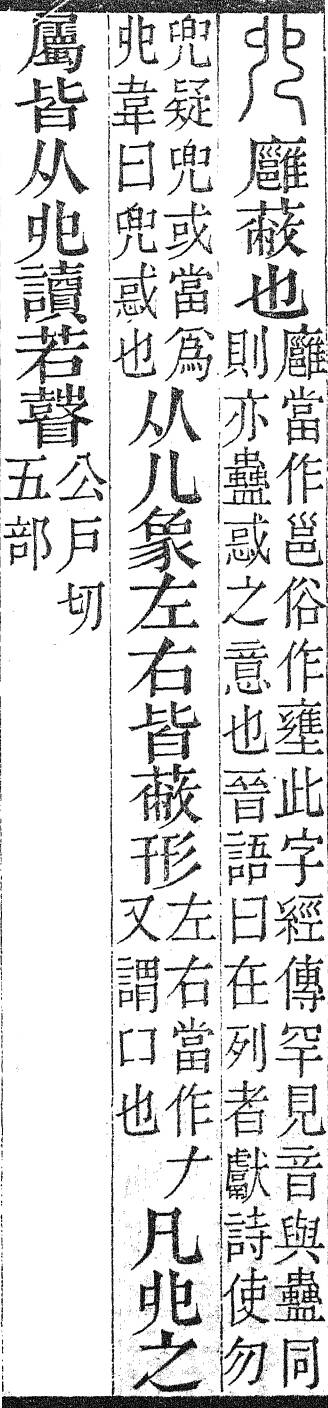 𠑹 廱蔽也 廱當作邕俗作壅此字經傳罕見音與蠱同則亦蠱惑之意也晉語曰在列者獻詩使勿
兜疑兜或當爲𠑹韋曰兜惑也 从儿象左右皆蔽形 左右當作𠂇又謂口也 凡𠑹之
屬皆从𠑹讀若瞽 公戶切五部